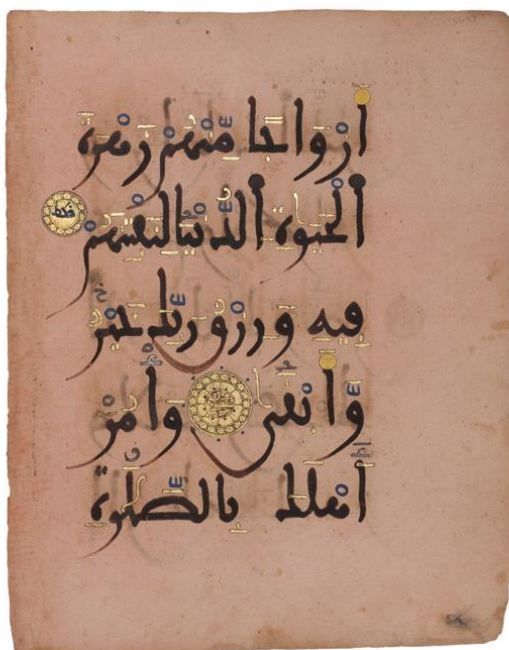 أَزْوَاجًا مِّنْهُمْ زَهْرَةَ
الْحَيَوٰةِ الدُّنْيَا لِنَفْتِنَهُمْ
فِيهِ وَرِزْقُ رَبِّكَ خَيْرٌ
وَّأَبْقَىٰ وَأْمُرْ
أَهْلَكَ بِالصَّلَوٰةِ